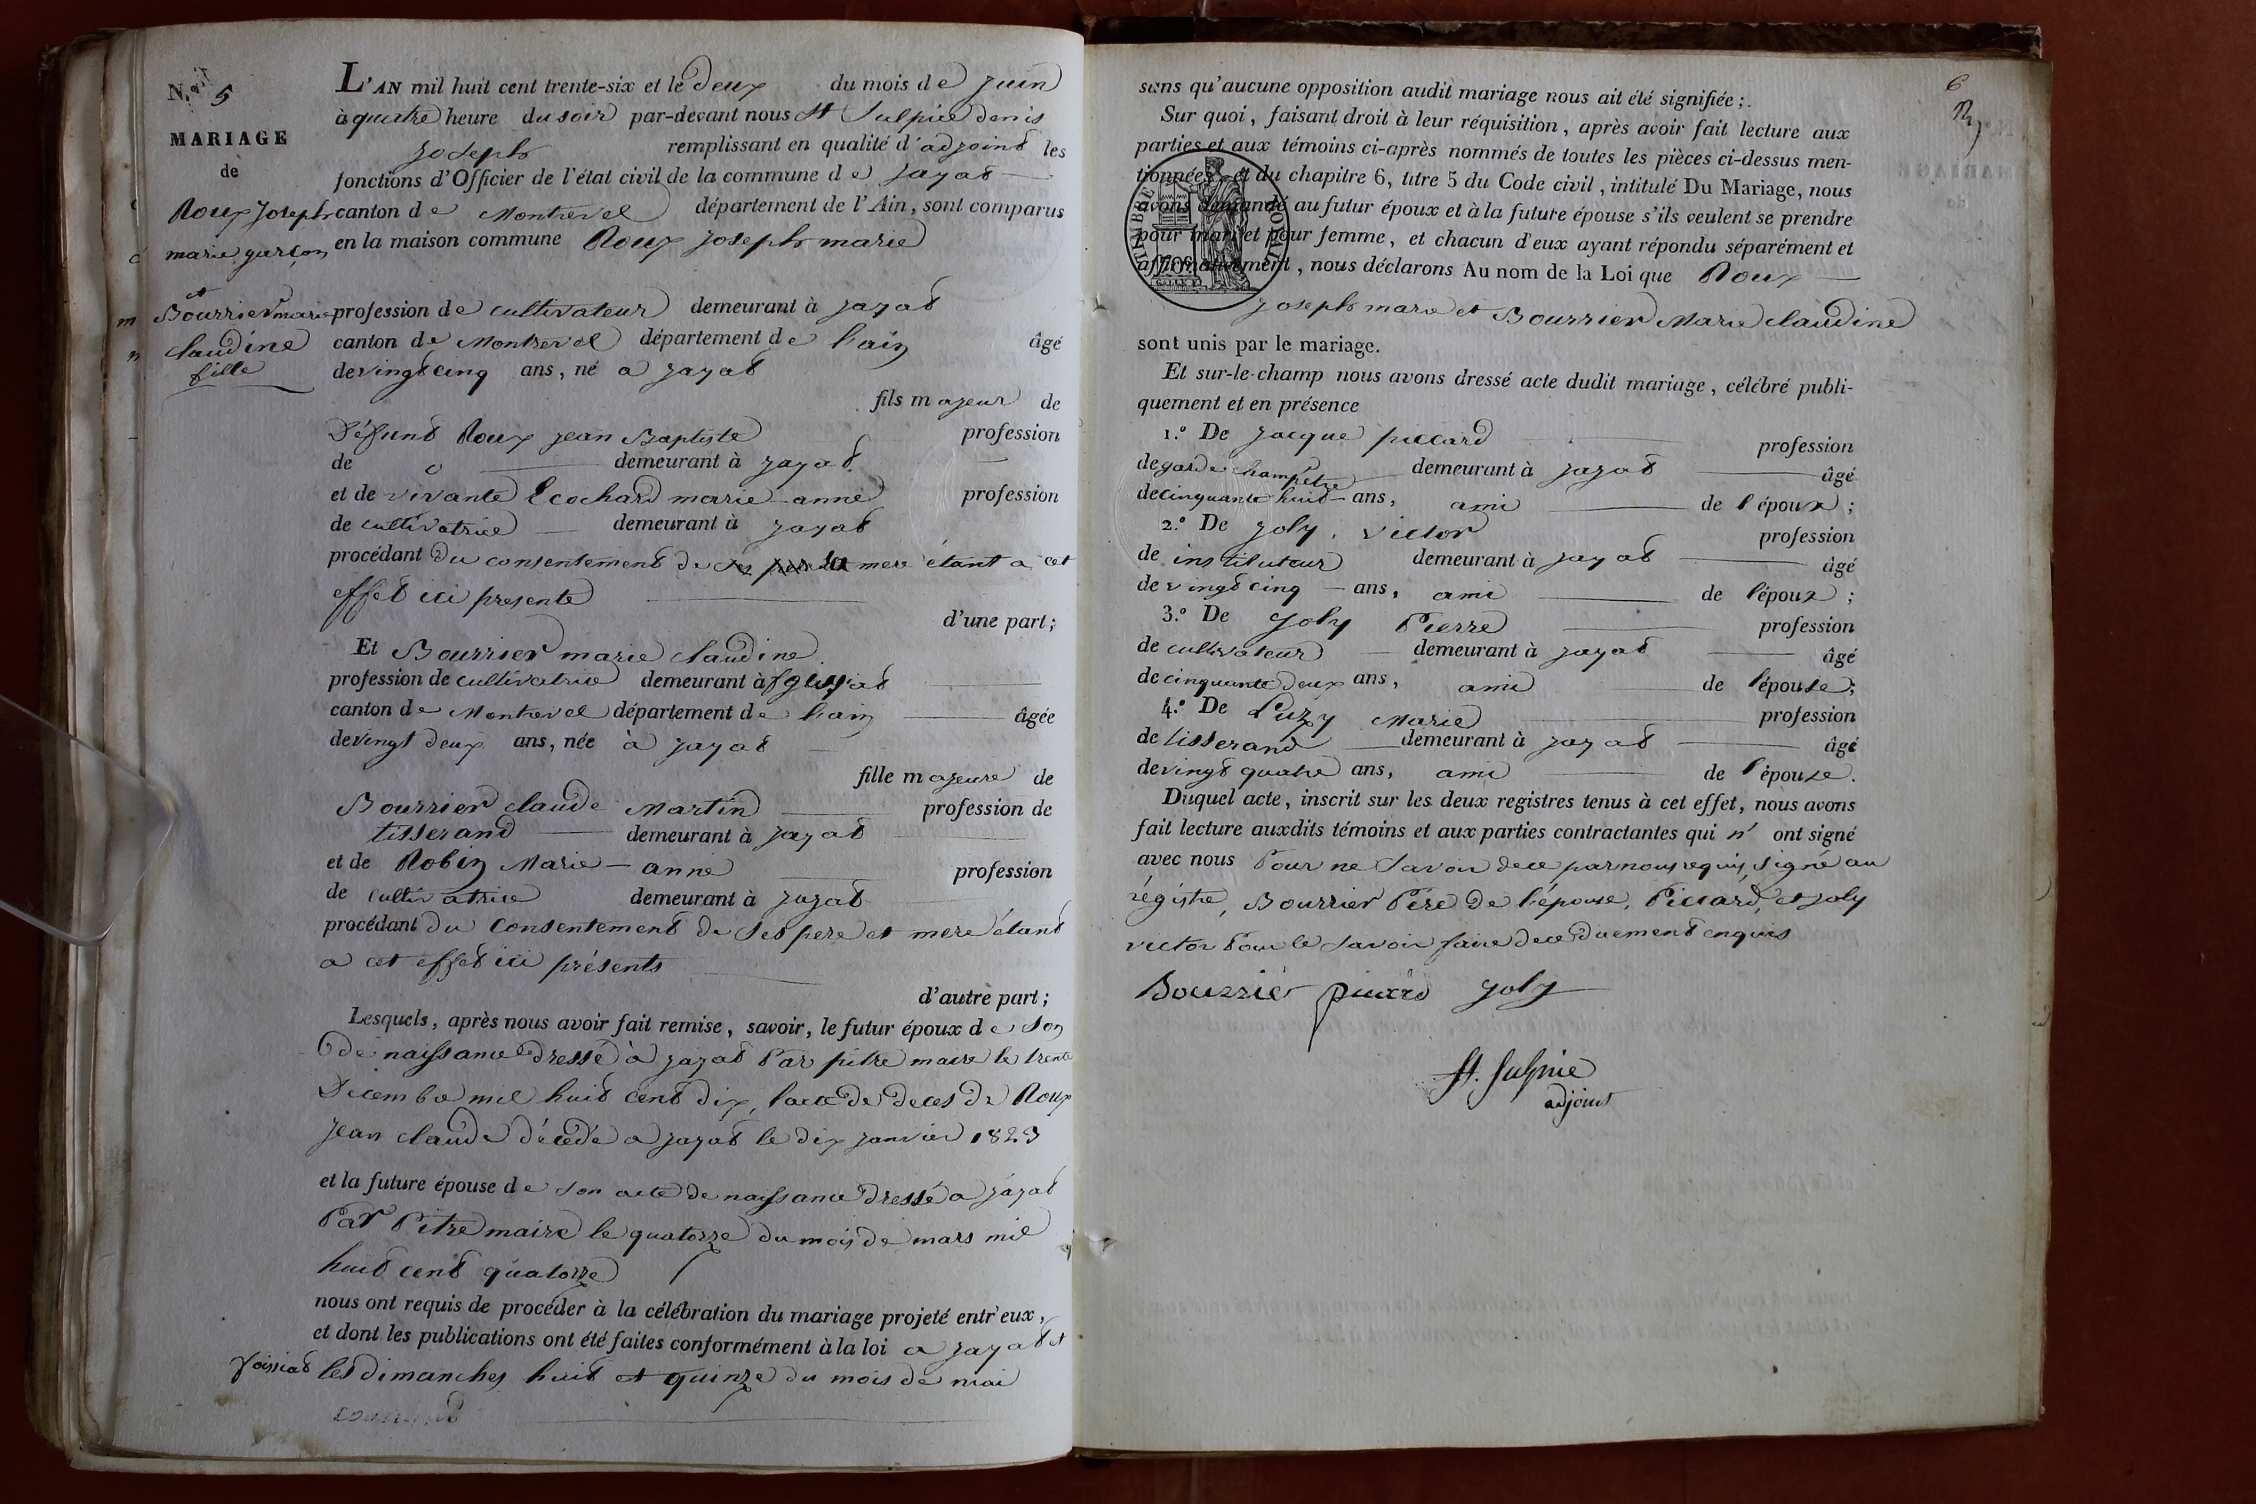 N.° 5
fait
MARIAGE
de
Roux Joseph
marie garçon
et
Bourrier marie
claudine
fille
L'AN mil huit cent trente-six et le deux du mois de juin
à quatre heure du soir par-devant nous St Sulpice denis
joseph remplissant en qualité d'adjoint les
fonctions d'Officier de l'état civil de la commune de jayat
canton de Montrevel département de l'Ain, sont comparus
en la maison commune Roux joseph marie
profession de cultivateur demeurant à jayat
canton de Montrevel département de l'ain âgé
de vingt cinq ans, né a jayat
fils majeur de
Défunt Roux jean Baptiste profession
de demeurant à jayat
et de vivante Ecochard marie anne profession
de cultivatrice demeurant à jayat
procédant du consentement de sa mere étant a cet
effet ici presente
d'une part;
Et Bourrier marie claudine
profession de cultivatrice demeurant à
canton de Montrevel département de l'ain âgée
de vingt deux ans, née à jayat
fille majeure de
Bourrier claude Martin profession de
tisserand demeurant à jayat
et de Robin Marie-anne profession
de cultivatrice demeurant à jayat
procédant du consentement de ses pere et mere étant
a cet effet ici présents
d'autre part;
Lesquels, après nous avoir fait remise, savoir, le futur époux de son
de naissance dressé à jayat Par pitre maire le trente
Décembre mil huit cent dix, l'acte de deces de Roux
jean claude décédé a jayat le dix janvier 1823
et la future épouse de son acte de naissance dressé a jayat
Par Pitre maire le quatorze du mois de mars mil
huit cent quatorze
nous ont requis de procéder à la célébration du mariage projeté entr'eux,
et dont les publications ont été faites conformément à la loi a jayat et
foissiat les dimanches huit et quinze du mois de mai
6
sans qu'aucune opposition audit mariage nous ait été signifiée;.
Sur quoi, faisant droit à leur réquisition, après avoir fait lecture aux
parties et aux témoins ci-après nommés de toutes les pièces ci-dessus men-
tionnées, et du chapitre 6, titre 5 du Code civil, intitulé Du Mariage, nous
avons demandé au futur époux et à la future épouse s'ils veulent se prendre
pour mari et pour femme, et chacun d'eux ayant répondu séparément et
affirmativement, nous déclarons Au nom de la Loi que Roux
TIMBRE ROYAL
joseph marie et Bourrier Marie claudine
sont unis par le mariage.
Et sur-le-champ nous avons dressé acte dudit mariage, célébré publi-
quement et en présence
1.° De jacque piccard profession
de garde champêtre demeurant à jayat âgé
de cinquante huit ans, ami de l'époux;
2.° De joly victor profession
de instituteur demeurant à jayat âgé
de vingt cinq ans, ami de l'époux;
3.° De Joly Pierre profession
de cultivateur demeurant à jayat âgé
de cinquante deux ans, ami de l'épouse;
4.° De Puzy Marie profession
de tisserand demeurant à jayat âgé
de vingt quatre ans, ami de l'épouse.
Duquel acte, inscrit sur les deux registres tenus à cet effet, nous avons
fait lecture auxdits témoins et aux parties contractantes qui n'ont signé
avec nous Pour ne savoir de ce par nous requis, signé au
régistre, Bourrier Père de l'épouse, Piccard, et joly
victor Pour le savoir faire de ce duement enquis
Bourrier picard joly
St. Sulpice
adjoint